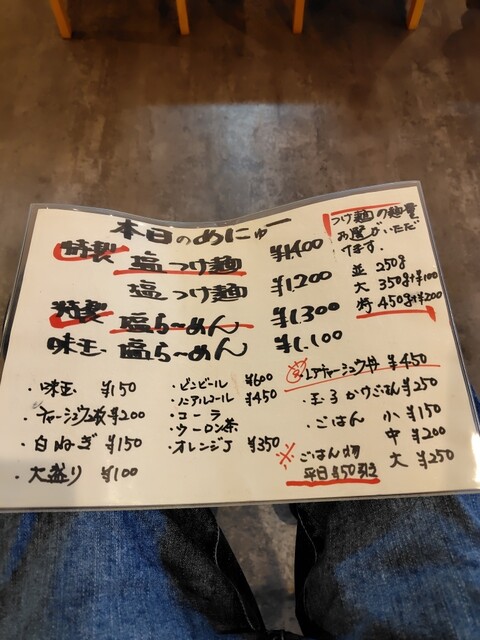 本日のめにゅー
特製 塩つけ麺 ¥1,400
塩つけ麺 ¥1,200
特製 塩らーめん ¥1,300
味玉 塩らーめん ¥1,100
つけ麺の麺量
お選びいただ
けます。
並 250g
大 350g+¥100
特 450g+¥200
・味玉 ¥150
・チャーシュウ2枚 ¥200
・白ねぎ ¥150
・大盛り ¥100
・ビンビール ¥600
・ノンアルコール ¥450
・コーラ
・ウーロン茶
・オレンジJ ¥350
レアチャーシュウ丼 ¥450
・玉子かけごはん ¥250
・ごはん 小 ¥150
中 ¥200
大 ¥250
※ごはん物
平日¥50引き